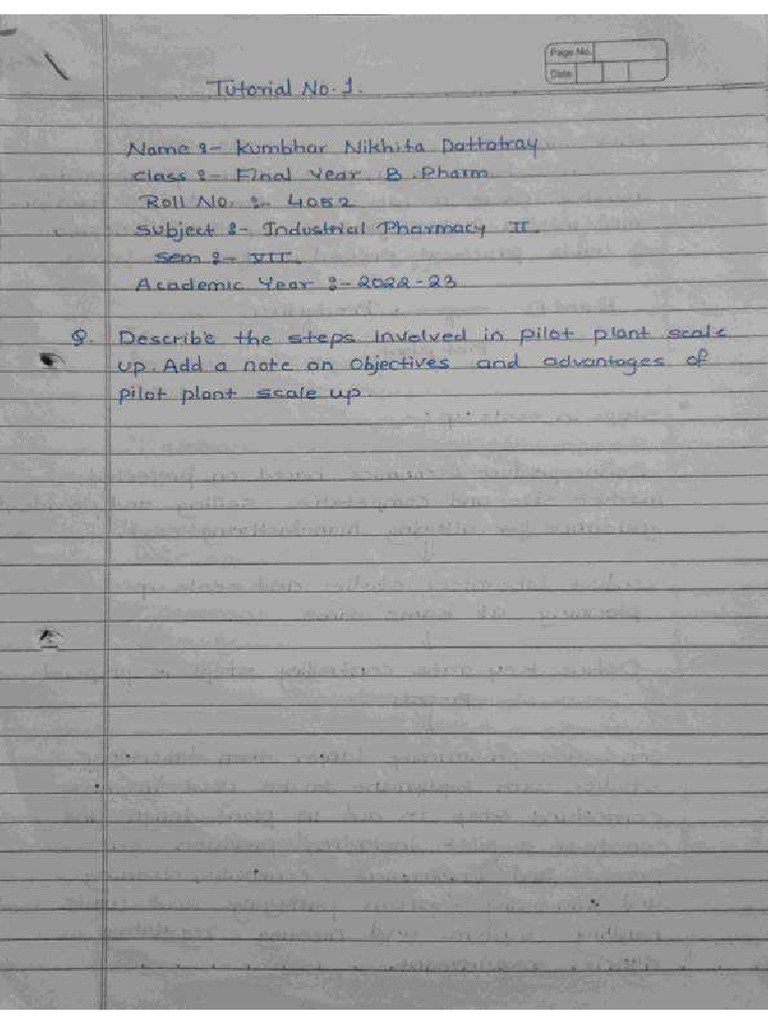 Page No.
Date
Tutorial No. 1.
Name :- Kumbhar Nikhita Dattatray
Class :- Final Year B. Pharm
Roll No. :- 4052
Subject :- Industrial Pharmacy II.
Sem :- VII.
Academic Year :- 2022-23
Q. Describe the steps involved in pilot plant scale
up. Add a note on objectives and advantages of
pilot plant scale up.